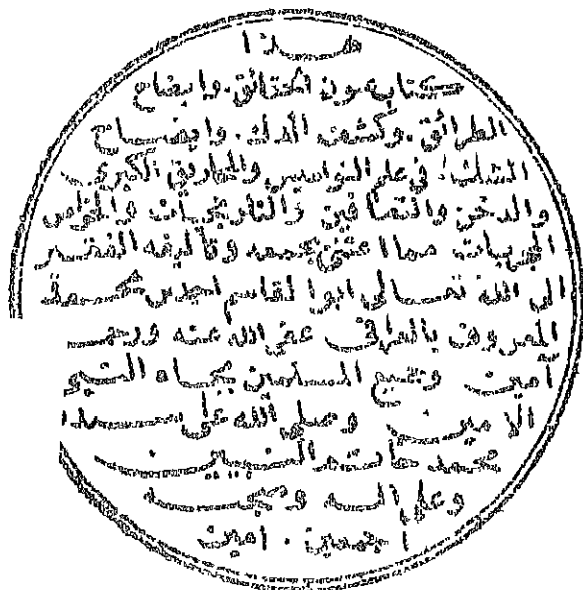 هذا
كتاب عيون الحقائق. وايضاح
الطرائق. وكشف الدك. وايضاح
الشك في علم النواميس والمخاريق الكبرى
والدخن والتعافين والنارنجيات والخواص
المجربات مما اعتنى بجمعه وتأليفه الفقير
الى الله تعالى ابو القاسم احمد
المعروف بالعراقي عفى الله عنه
آمين وجميع المسلمين بجاه النبي
الامين وصلى الله على سيدنا
محمد خاتم النبيين
وعلى اله وصحبه
اجمعين. امين